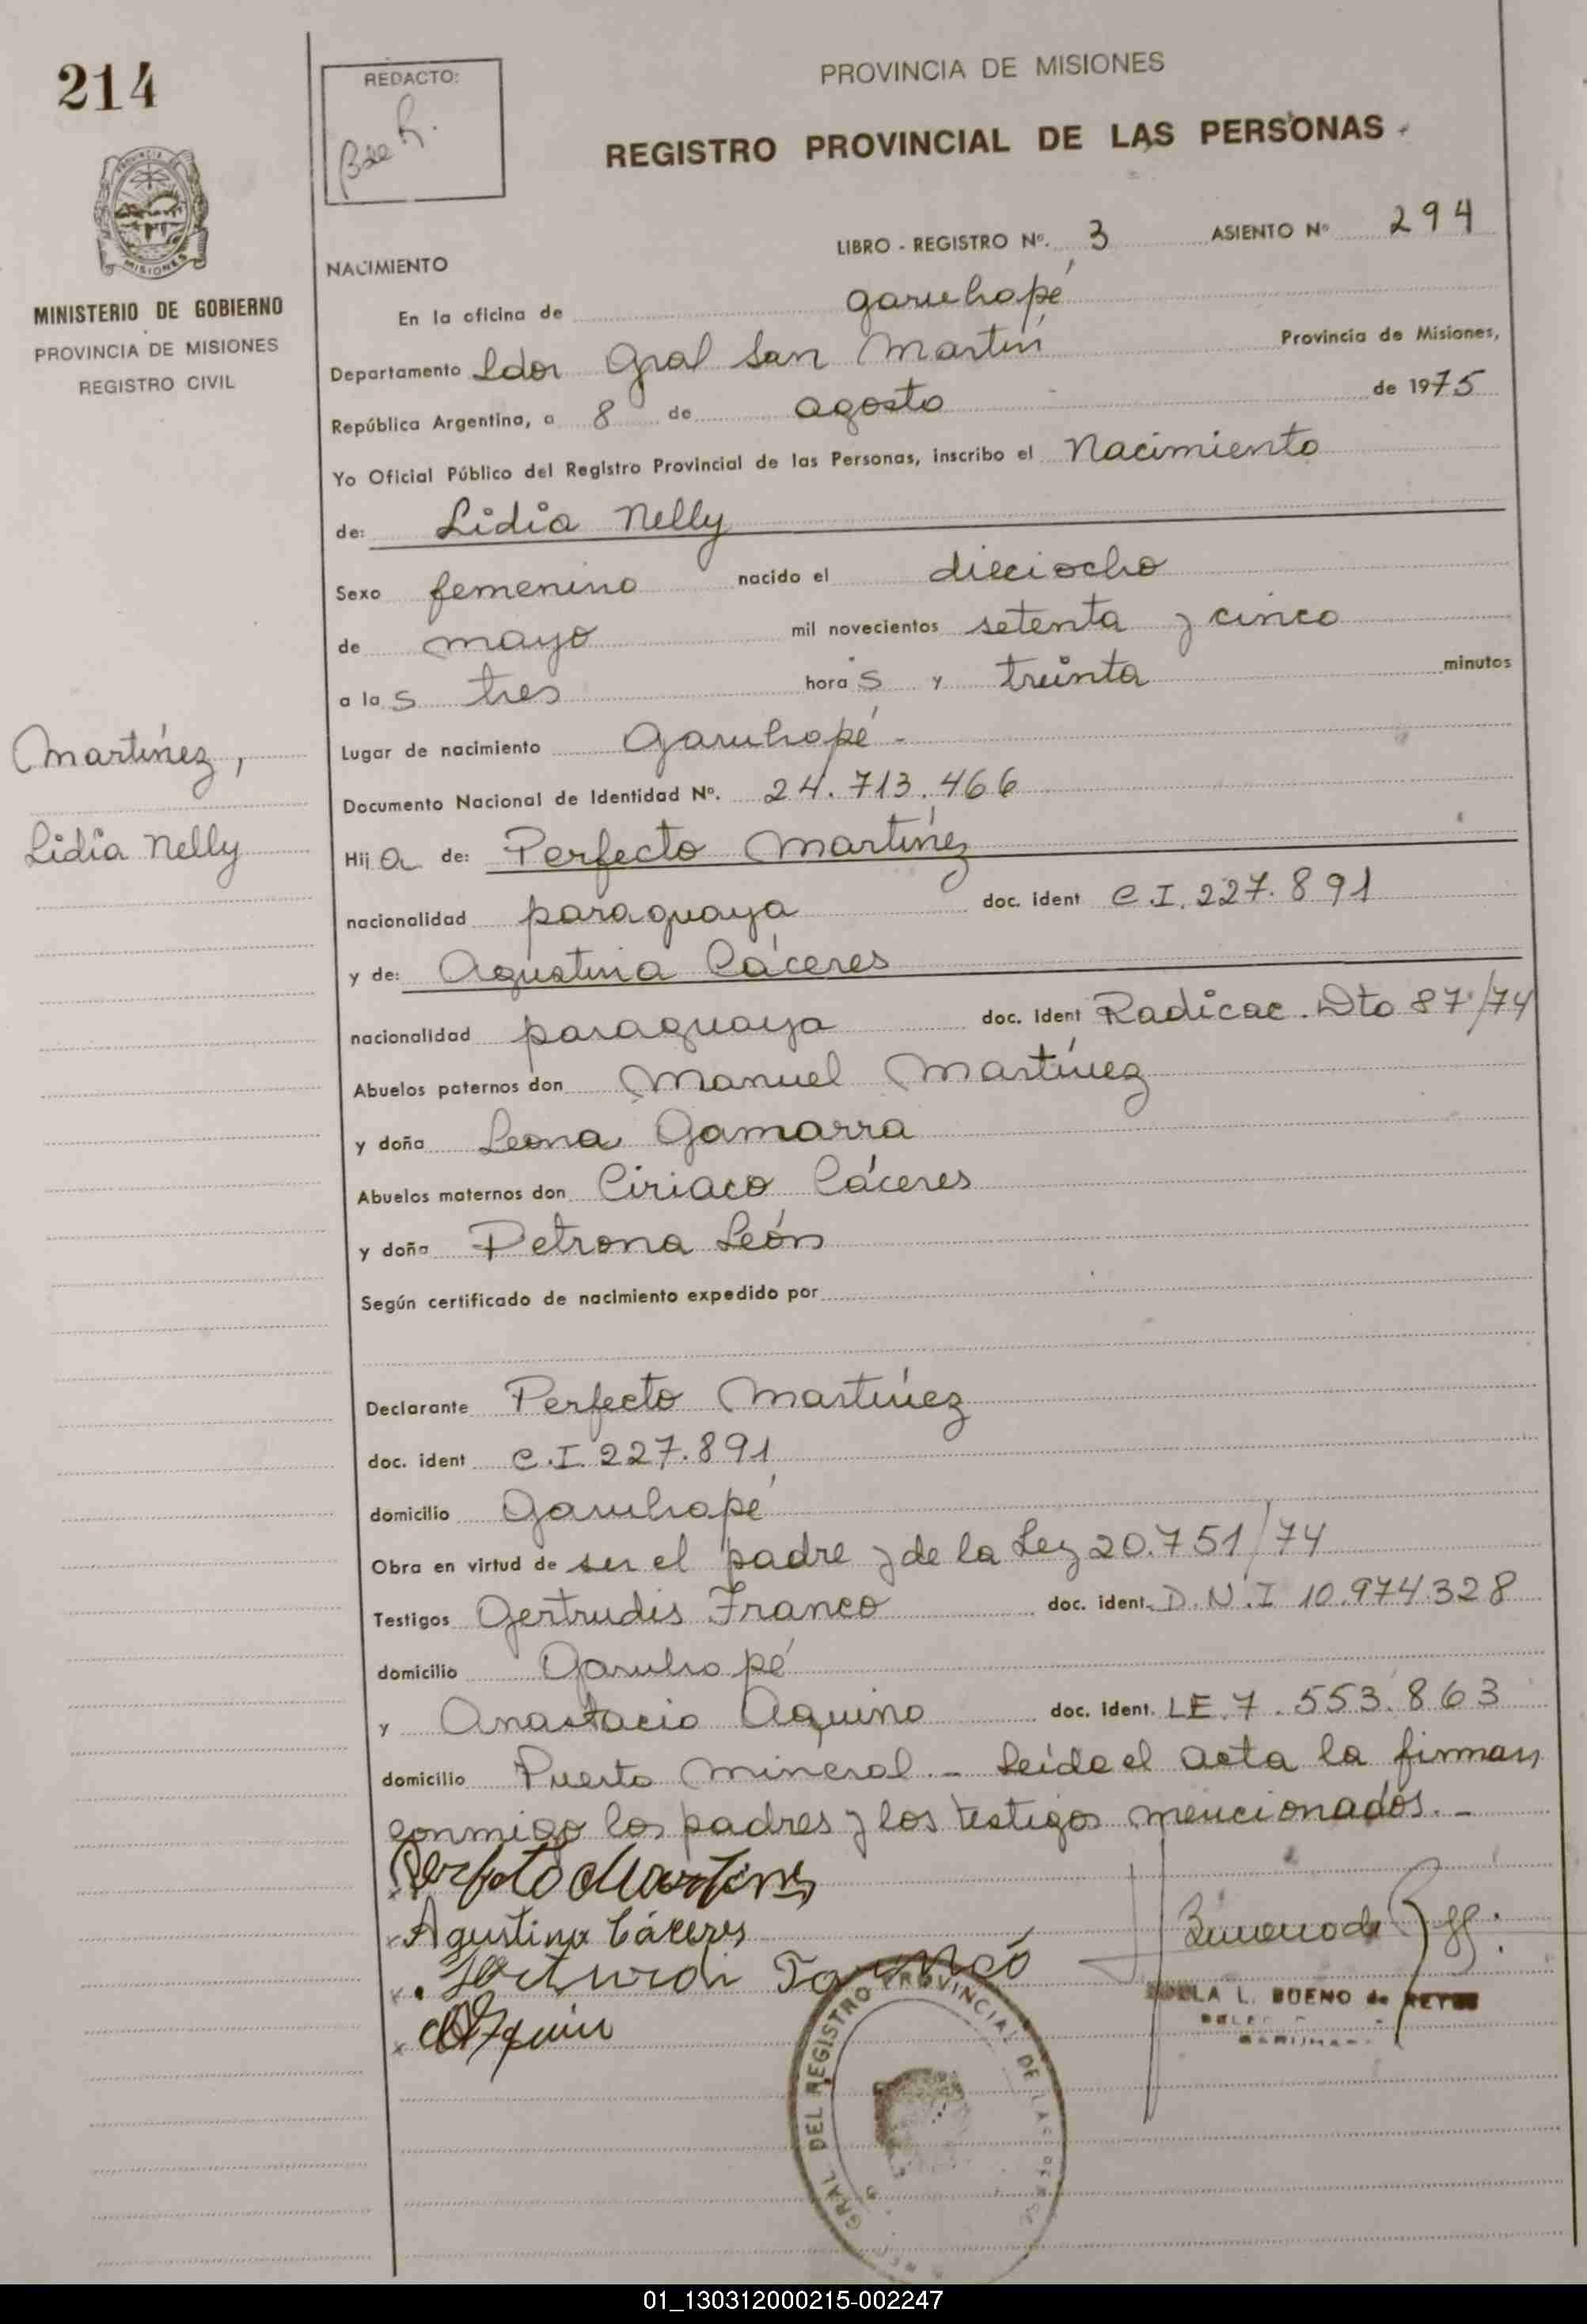 214
REDACTO:
Bde R.
PROVINCIA DE MISIONES
REGISTRO PROVINCIAL DE LAS PERSONAS
MISIONES
MINISTERIO DE GOBIERNO
PROVINCIA DE MISIONES
REGISTRO CIVIL
LIBRO - REGISTRO Nº. 3 ASIENTO Nº 294
NACIMIENTO
En la oficina de Garuhapé
Departamento Ldor Gral San Martín Provincia de Misiones,
República Argentina, a 8 de agosto de 1975
Yo Oficial Público del Registro Provincial de las Personas, inscribo el Nacimiento
de: Lidia Nelly
Sexo femenino nacido el dieciocho
de mayo mil novecientos setenta y cinco
a las tres horas y treinta minutos
Martínez,
Lidia Nelly
Lugar de nacimiento Garuhapé -
Documento Nacional de Identidad Nº. 24.713.466
Hija de: Perfecto Martínez
nacionalidad paraguaya doc. ident C.I. 227.891
y de: Agustina Cáceres
nacionalidad paraguaya doc. ident Radicac. Dto 87/74
Abuelos paternos don Manuel Martínez
y doña Leona Gamarra
Abuelos maternos don Ciriaco Cáceres
y doña Petrona León
Según certificado de nacimiento expedido por
Declarante Perfecto Martínez
doc. ident C.I. 227.891
domicilio Garuhapé
Obra en virtud de ser el padre y de la Ley 20.751/74
Testigos Gertrudis Franco doc. ident. D.N.I 10.974.328
domicilio Garuhapé
y Anastacio Aquino doc. ident. LE. 7.553.863
domicilio Puerto Mineral. - Leída el acta la firman
conmigo los padres y los testigos mencionados. -
Perfeto Martines
Agustina Cáceres
L. BUENO de REYES
GRAL. DEL REGISTRO PROVINCIAL DE LAS
01_130312000215-002247